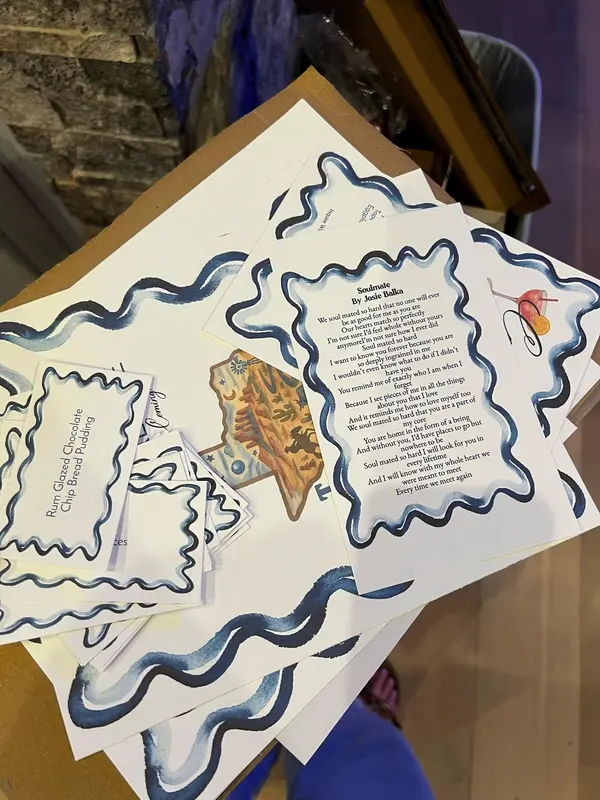 Soulmate
By Josie Balka
We soul mated so hard that no one will ever
be as good for me as you are
Our hearts match so perfectly
I'm not sure I'd feel whole without yours
anymoreI'm not sure how I ever did
Soul mated so hard
I want to know you forever because you are
so deeply ingrained in me
I wouldn't even know what to do if I didn't
have you
You remind me of exactly who I am when I
forget
Because I see pieces of me in all the things
about you that I love
And it reminds me how to love myself too
We soul mated so hard that you are a part of
my core
You are home in the form of a being
And without you, I'd have places to go but
nowhere to be
Soul mated so hard I will look for you in
every lifetime
And I will know with my whole heart we
were meant to meet
Every time we meet again
Rum Glazed Chocolate
Chip Bread Pudding
Coming
ces